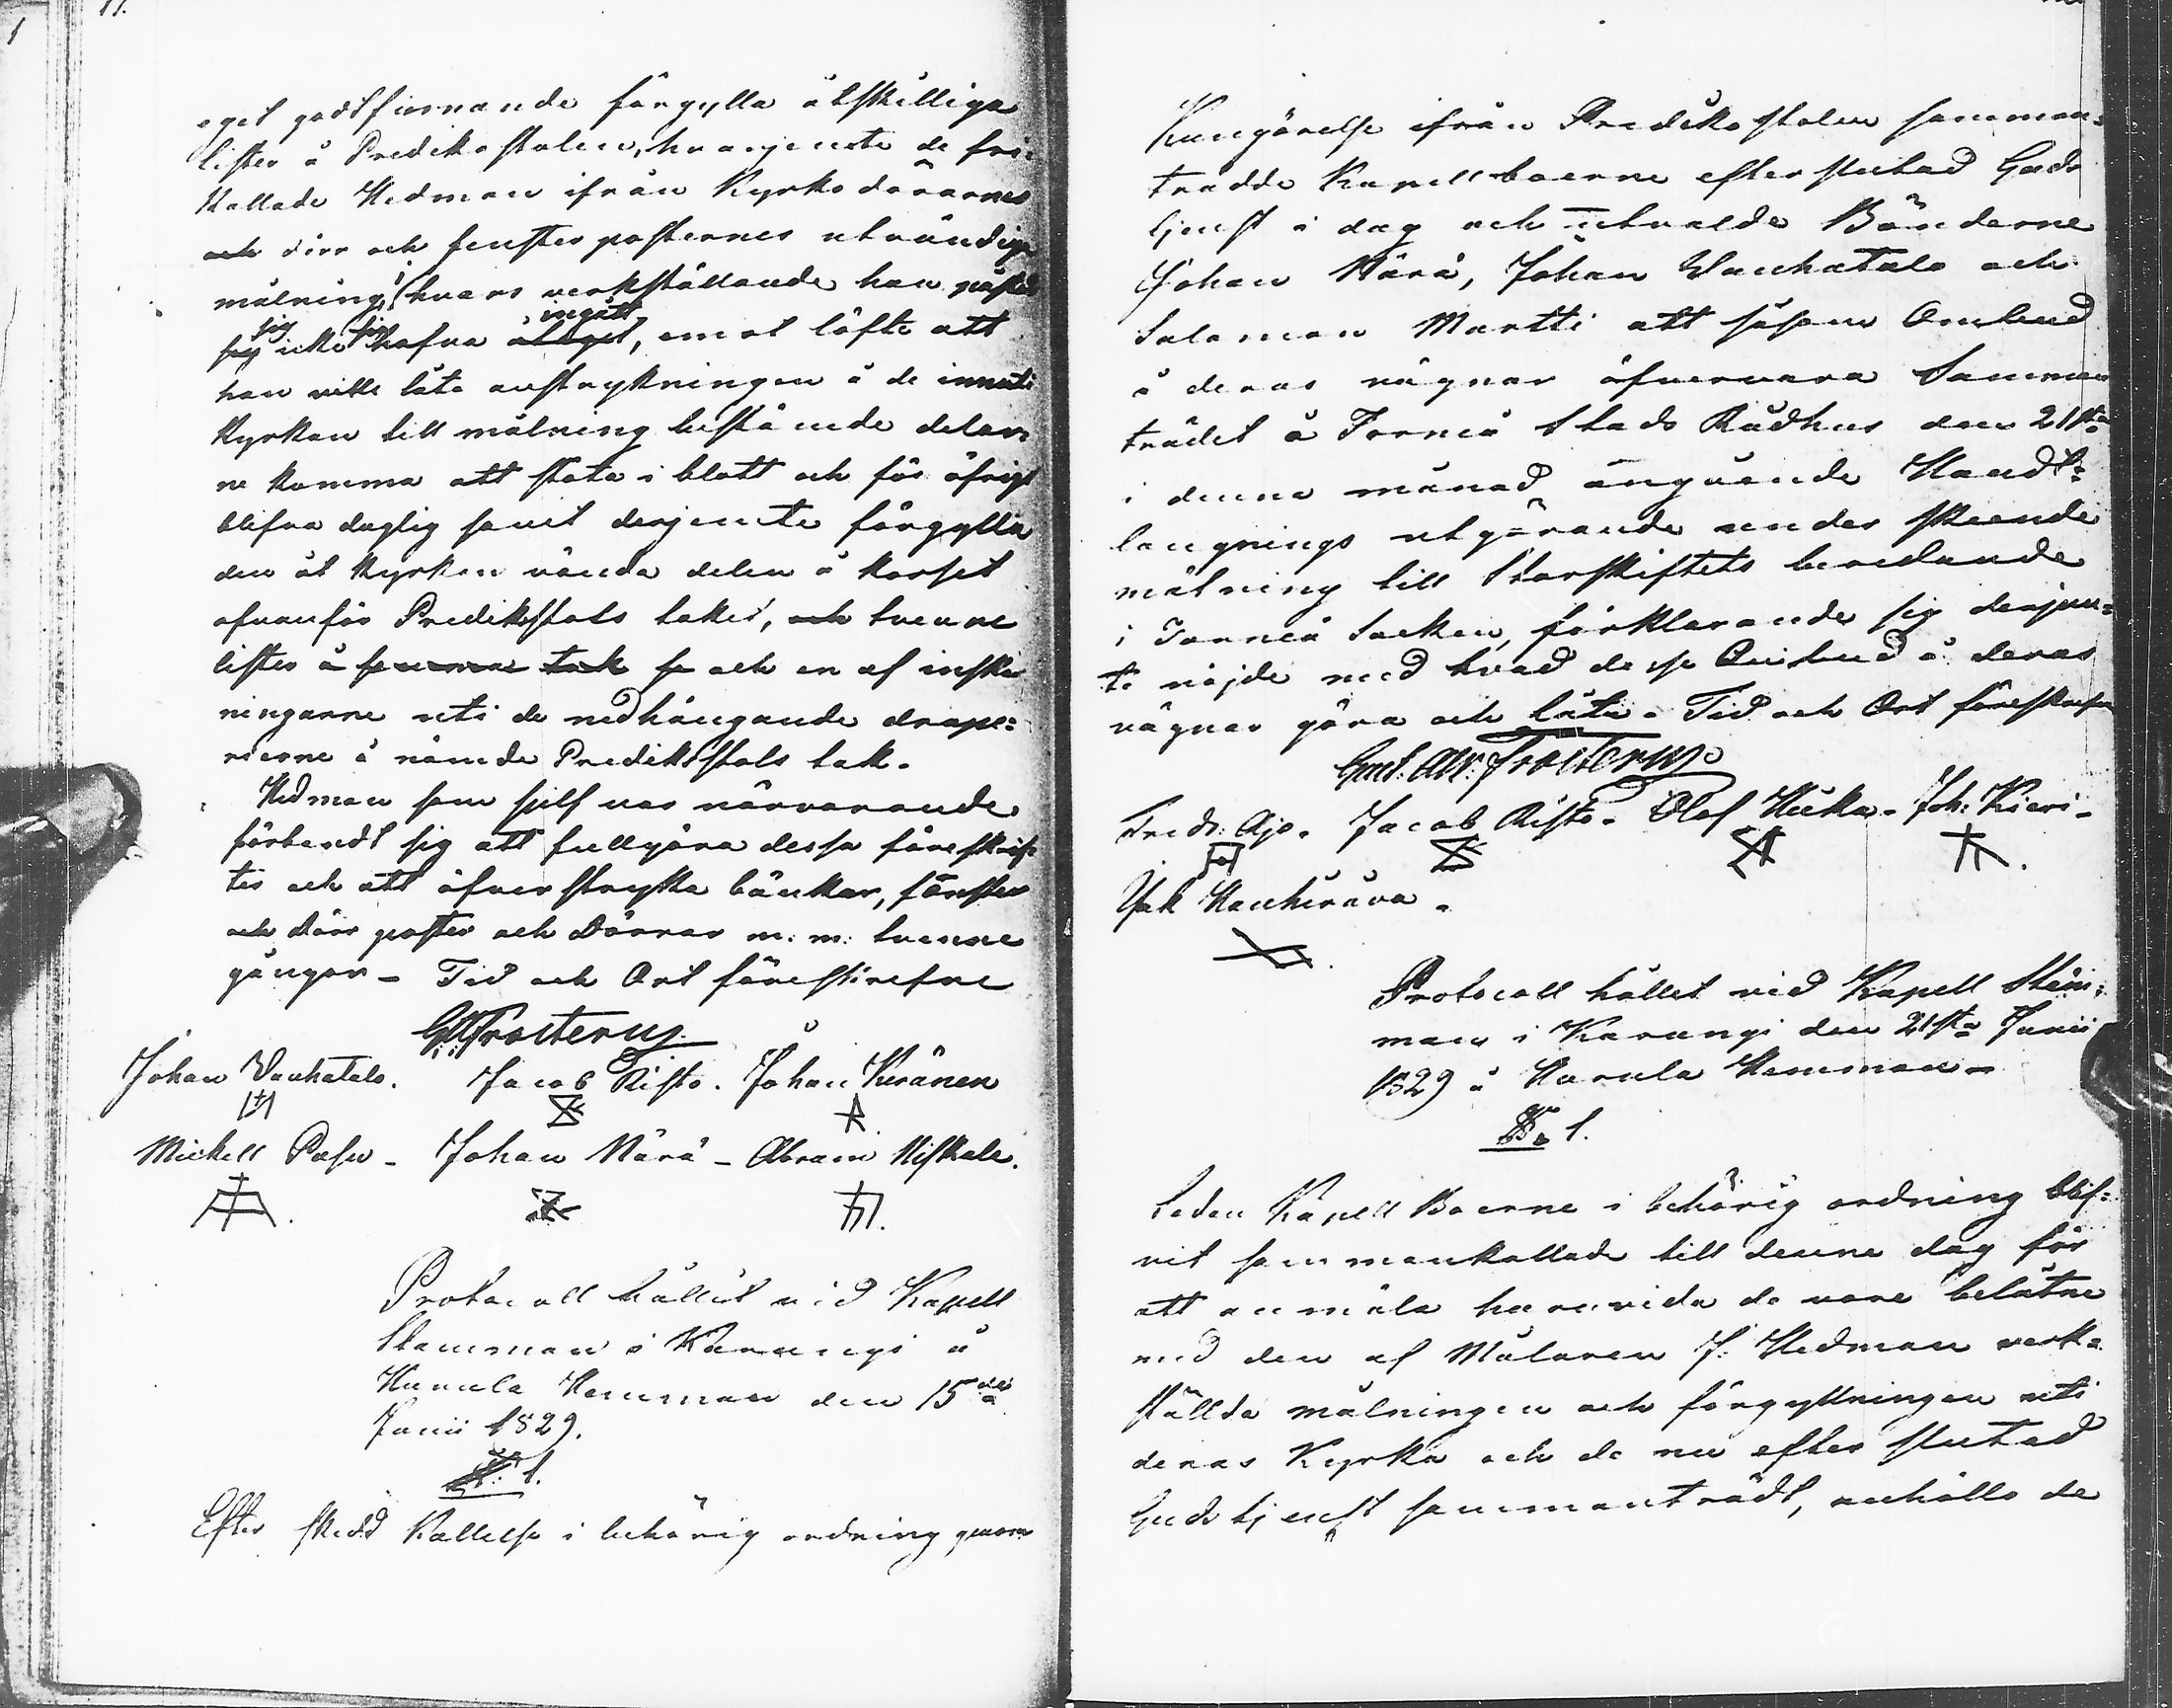 eget godtfinnande förgylla åtskilliga
lister å Predikostolen, hvarjemte de fri-
kallade Hedman ifrån Kyrkodörarnes
och dörr och fensterposternes utvändiga
målning, (hvars verkställande han påstod
sig icke hafva ingått, emot löfte att
han ville låta anstrykningen å de innuti
Kyrkan till målning bestående delar-
ne komma att stöta i blått och för öfrigt
blifva duglig samt derjemte förgylla
den åt Kyrkan vända delen å korset
ofvanför Predikstols taket, och tvenne
lister å samma tak se och en af inskä-
ningarne uti de nedhängande drape=
rierne å nämde Predikstols tak.
Hedman som sjelf var närvarande
förbandt sig att fullgöra dessa föreskrif-
ter och att öfverstryka bänkar, fönster
och dörr poster och dörrar m. m. tvenne
gångor – Tid och Ort föreskrefne
G. A. Frosterus
Johan Vanhatalo. Jacob Risto. Johan Keränen
Mickell Pasu – Johan Närä – Abram Niskala.
Protocoll hållit vid Kapell
Stamman i Karungi å
Hannula Hemman den 15de
Junii 1829.
§. 1.
Efter skedd Kallelse i behörig ordning genom
Kungörelse ifrån Predikostolen samman=
trädde Kapellboerne efter slutad Guds
tjenst i dag och utvalde Bönderne
Johan Närä, Johan Vanhatalo och
Salomon Martti att såsom Ombud
å deras vägnar öfvervara Samman
trädet å Torneå Stads Rådhus den 21sta
i denna månad angående Handt=
langnings utgörande under skeende
mätning till Storskiftets beredande
i Torneå Socken, förklarande sig derjem=
te nöjde med hvad desse Ombud å deras
vägnar göra och låta. Tid och Ort föreskrefne
Gust. Ad: Frosterus
Fredr: Ajo. Jacob Risto. Olof Hukka. Joh: Kieri –
Isak Hanhirova.
Protocoll hållet vid Kapell Stäm=
man i Karungi den 21sta Junii
1829 å Hannula Hemman –
§. 1.
Sedan Kapell Boerne i behörig ordning blif=
vit sammankallade till denne dag för
att anmäla huruvida de vore belåtne
med den af Målaren J: Hedman verk=
ställda målningen och förgyllningen uti
deras Kyrka och de nu efter slutad
Gudstjenst sammanträdt, anhöllo de